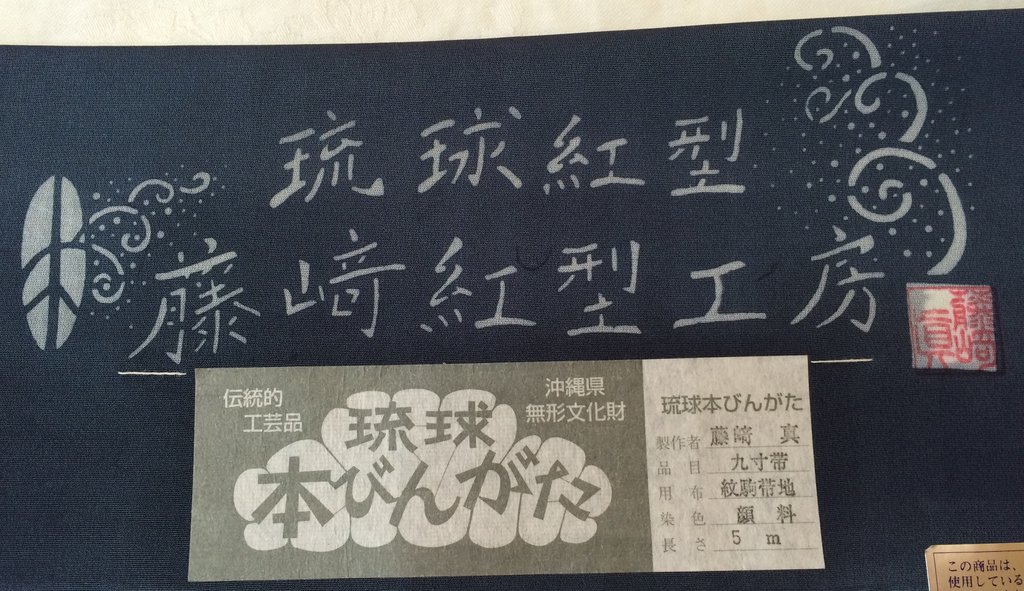 琉球紅型
藤﨑紅型工房
藤﨑眞
伝統的
工芸品
沖縄県
無形文化財
琉球
本びんがた
琉球本びんがた
製作者 藤﨑 真
品目 九寸帯
用布 紋駒帯地
染色 顔料
長さ 5m
この商品は、
使用している